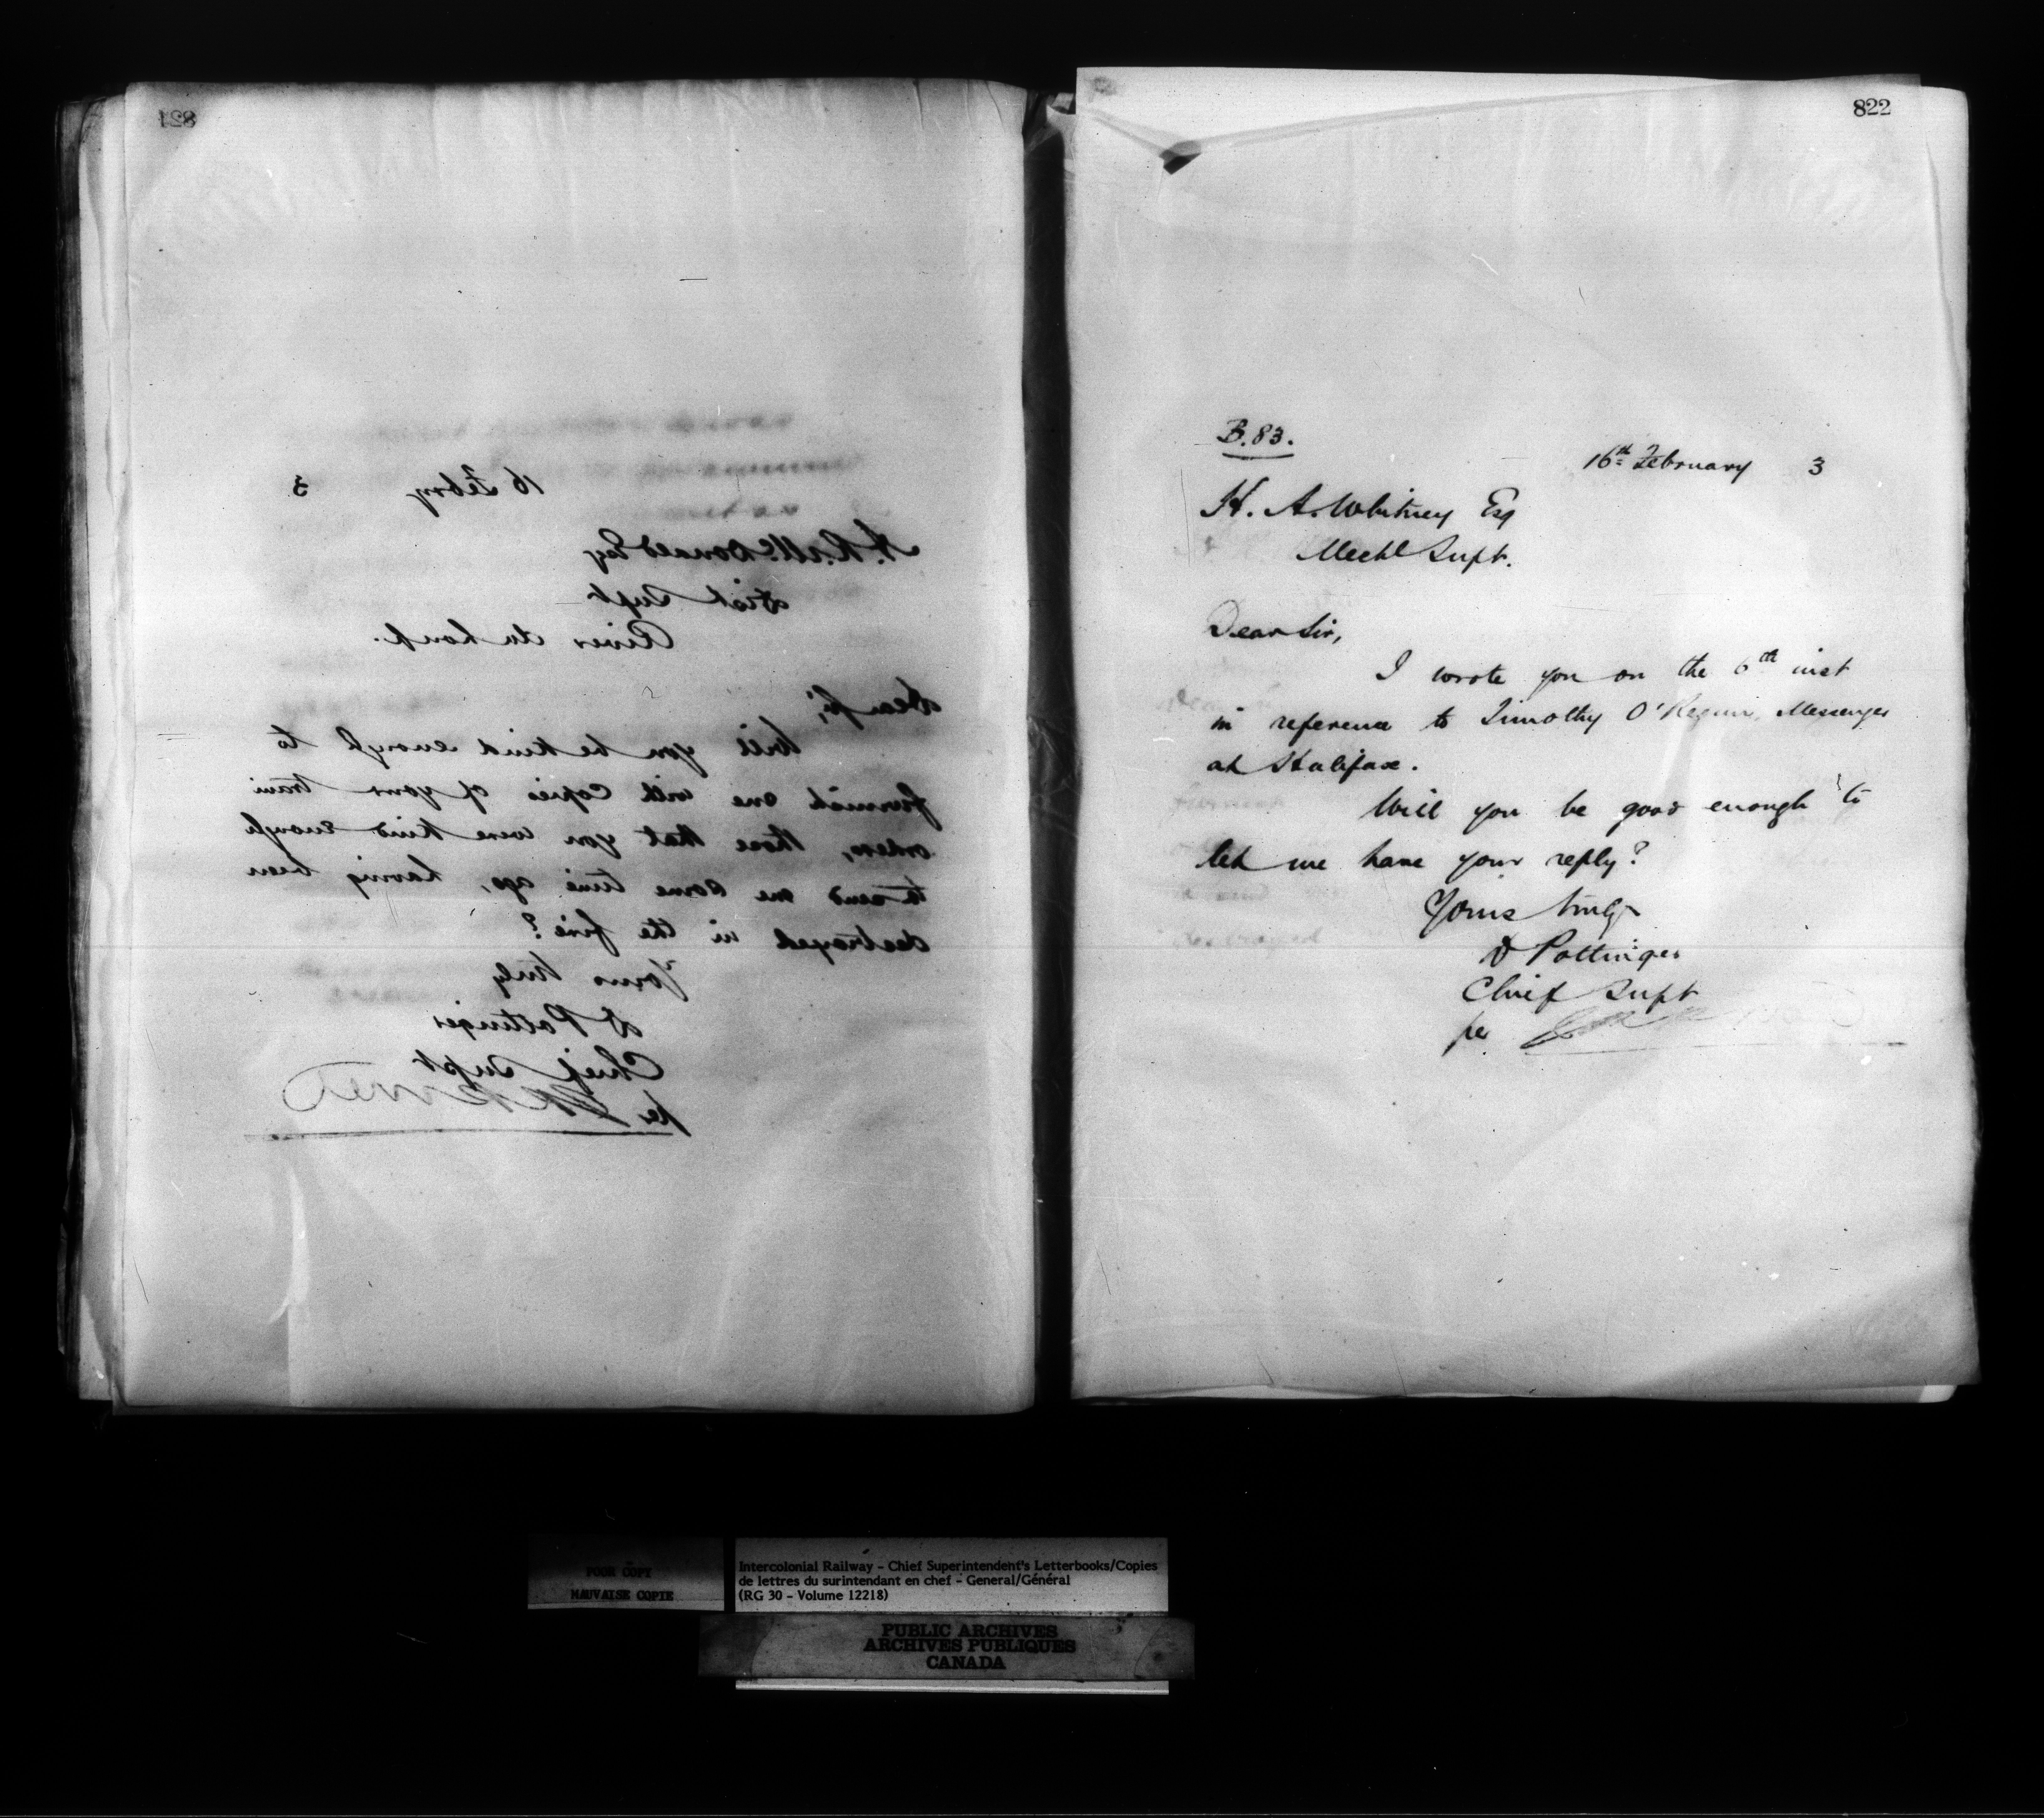 821
16 Febry 3
A. R. McDonald Esq
Dist Supt
River du Loup.
Dear Sir,
Will you be kind enough to
furnish me with copies of your train
orders, those that you were kind enough
to send me some time ago, having been
destroyed in the fire?
Yours truly
D Pottinger
Chief Supt
per
822
B.83.
16th February 3
H. A. Whitney Esq
Mechl Supt.
Dear Sir,
I wrote you on the 6th inst
in reference to Timothy O'Regan, Messenger
at Halifax.
Will you be good enough to
let me have your reply?
Yours truly
D Pottinger
Chief Supt
per
POOR COPY
MAUVAISE COPIE
Intercolonial Railway - Chief Superintendent's Letterbooks/Copies
de lettres du surintendant en chef - General/Général
(RG 30 - Volume 12218)
PUBLIC ARCHIVES
ARCHIVES PUBLIQUES
CANADA